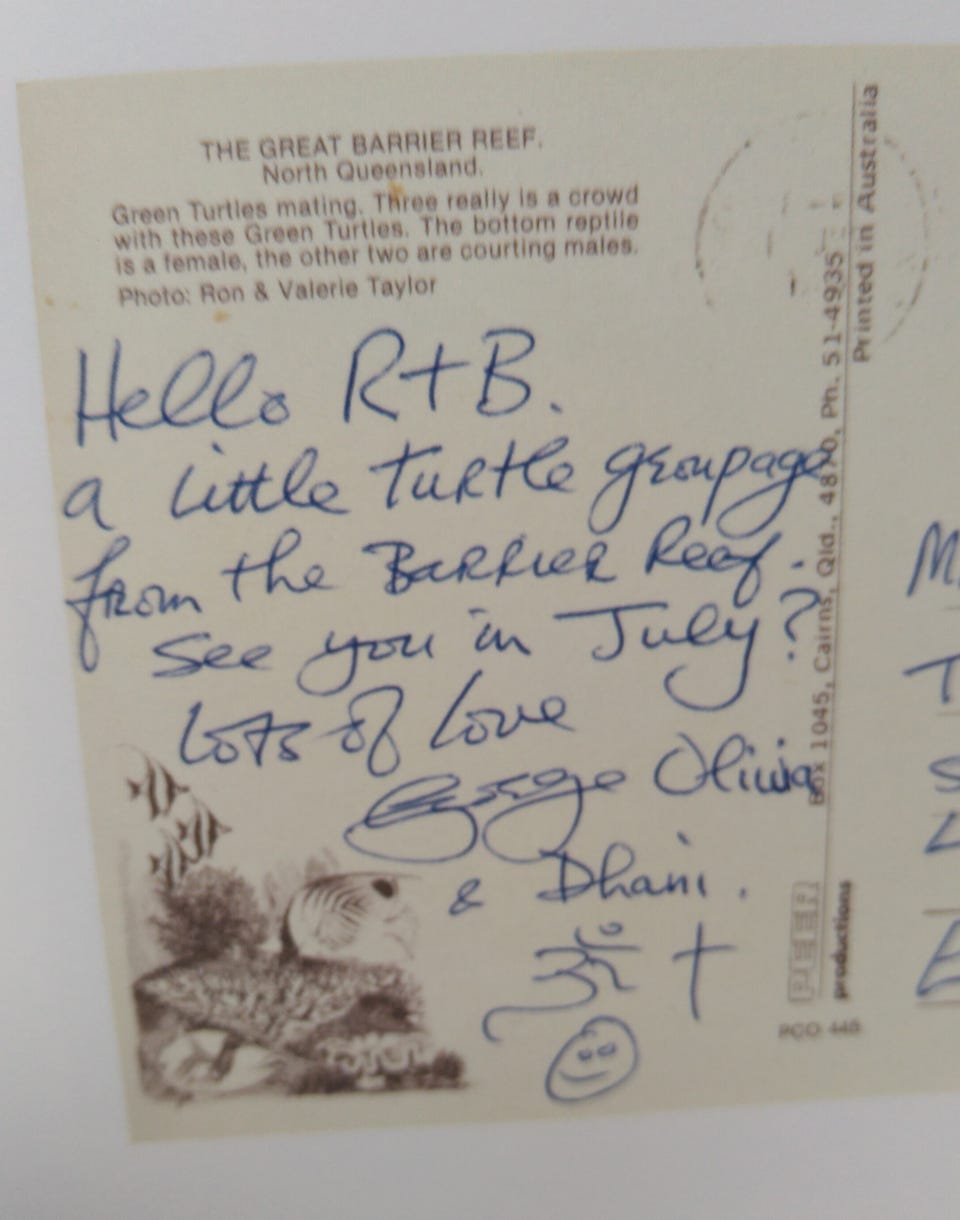 THE GREAT BARRIER REEF.
North Queensland.
Green Turtles mating. Three really is a crowd
with these Green Turtles. The bottom reptile
is a female, the other two are courting males.
Photo: Ron & Valerie Taylor
Hello R+B.
a little turtle groupage
from the Barrier Reef.
See you in July?
Lots of Love
George Olivia
& Dhani.
ॐ †
PEER
productions
Box 1045, Cairns, Qld., 4870, Ph. 51-4935
Printed in Australia
PCO 445
M
T
S
L
E